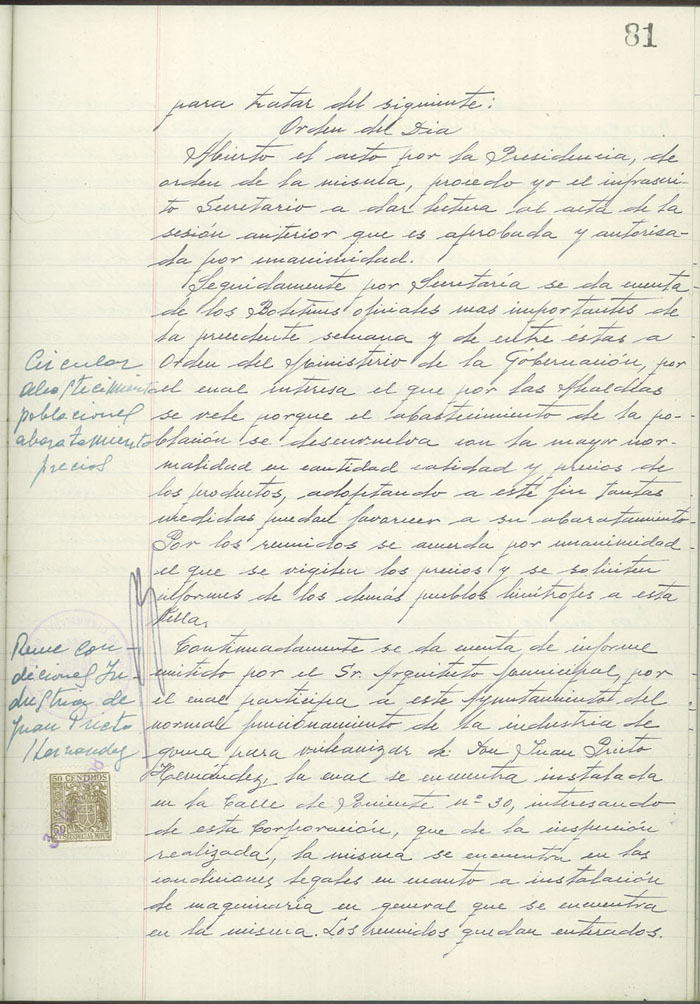 81
para tratar del siguiente:
Orden del Dia
Abierto el acto por la Presidencia, de
orden de la misma, procedo yo el infrascri-
to Secretario a dar lectura al acta de la
sesión anterior que es aprobada y autorisa-
da por unanimidad.
Seguidamente por Secretaría se da cuenta
de los Boletines oficiales mas importantes de
la precedente semana y de entre éstas a
Orden del Ministerio de la Gobernación, por
el cual interesa el que por las Alcaldías
se vele porque el abastecimiento de la po-
blación se desenvuelva con la mayor nor-
malidad en cantidad calidad y precios de
los productos, adoptando a este fin tantas
medidas puedan favorecer a su abaratamiento
Por los reunidos se acuerda por unanimidad
el que se vigilen los precios y se soliciten
informes de los demás pueblos limítrofes a esta
Villa.
Circular
abastecimiento
poblaciones
abaratamiento
precios
Continuadamente se da cuenta de informe
emitido por el Sr. Arquitecto Municipal, por
el cual participa a este Ayuntamiento del
normal funcionamiento de la industria de
goma para vulcanizar de Don Juan Prieto
Hernández, la cual se encuentra instalada
en la Calle de Poniente nº 30, interesando
de esta Corporación, que de la inspección
realizada, la misma se encuentra en las
condiciones legales en cuanto a instalación
de maquinaria en general que se encuentra
en la misma. Los reunidos quedan enterados.
Reune con-
diciones In-
dustria de
Juan Prieto
Hernandez
50 CENTIMOS
50
ESPECIAL MOVIL